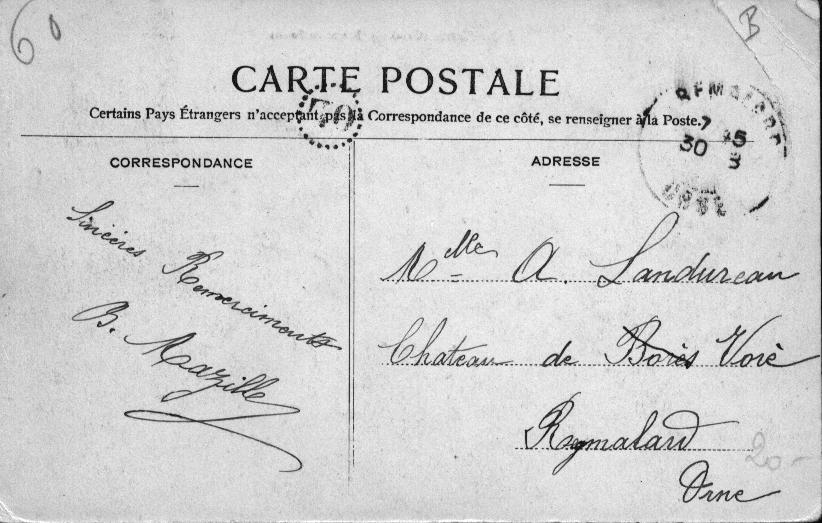 60
B
CARTE POSTALE
Certains Pays Étrangers n'acceptant pas la Correspondance de ce côté, se renseigner à la Poste.
CORRESPONDANCE
Sincères Remerciments
B. Mazille
ADRESSE
30
3
ORNE
Mlle A. Landureau
Chateau de Bores Vorè
Regmalard
Orne
20-